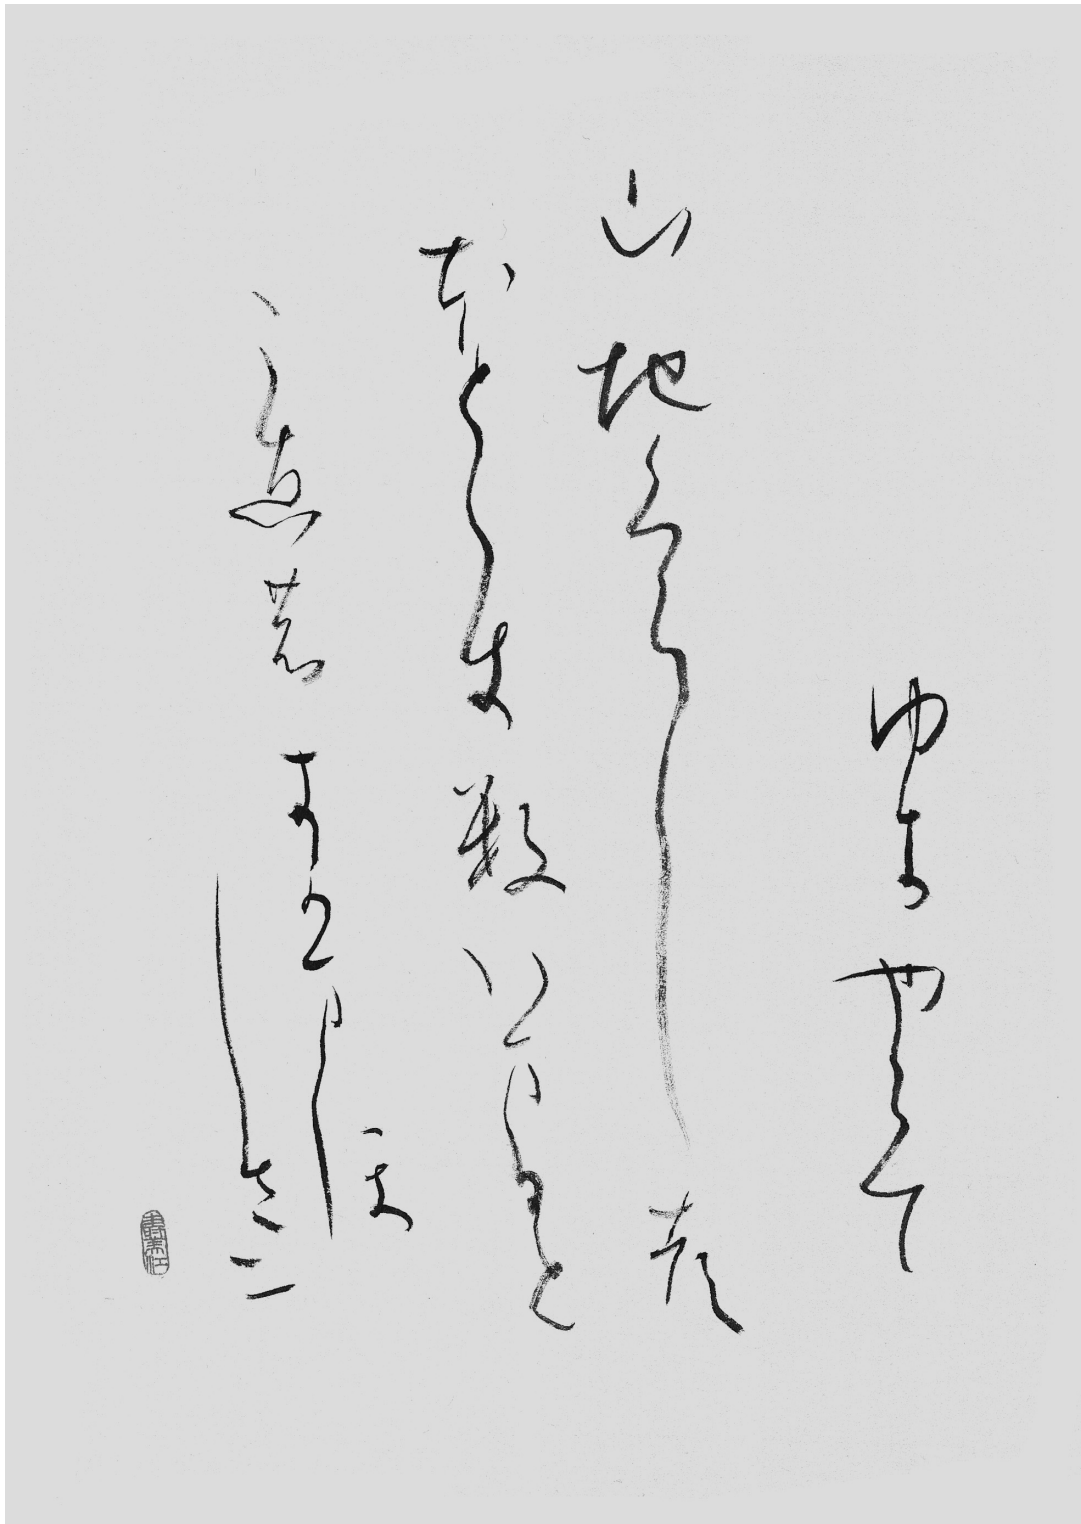 ゆきやらて
山地くらし徒
本とゝき数いまひと
こ恵の
きかまほ
しさ二